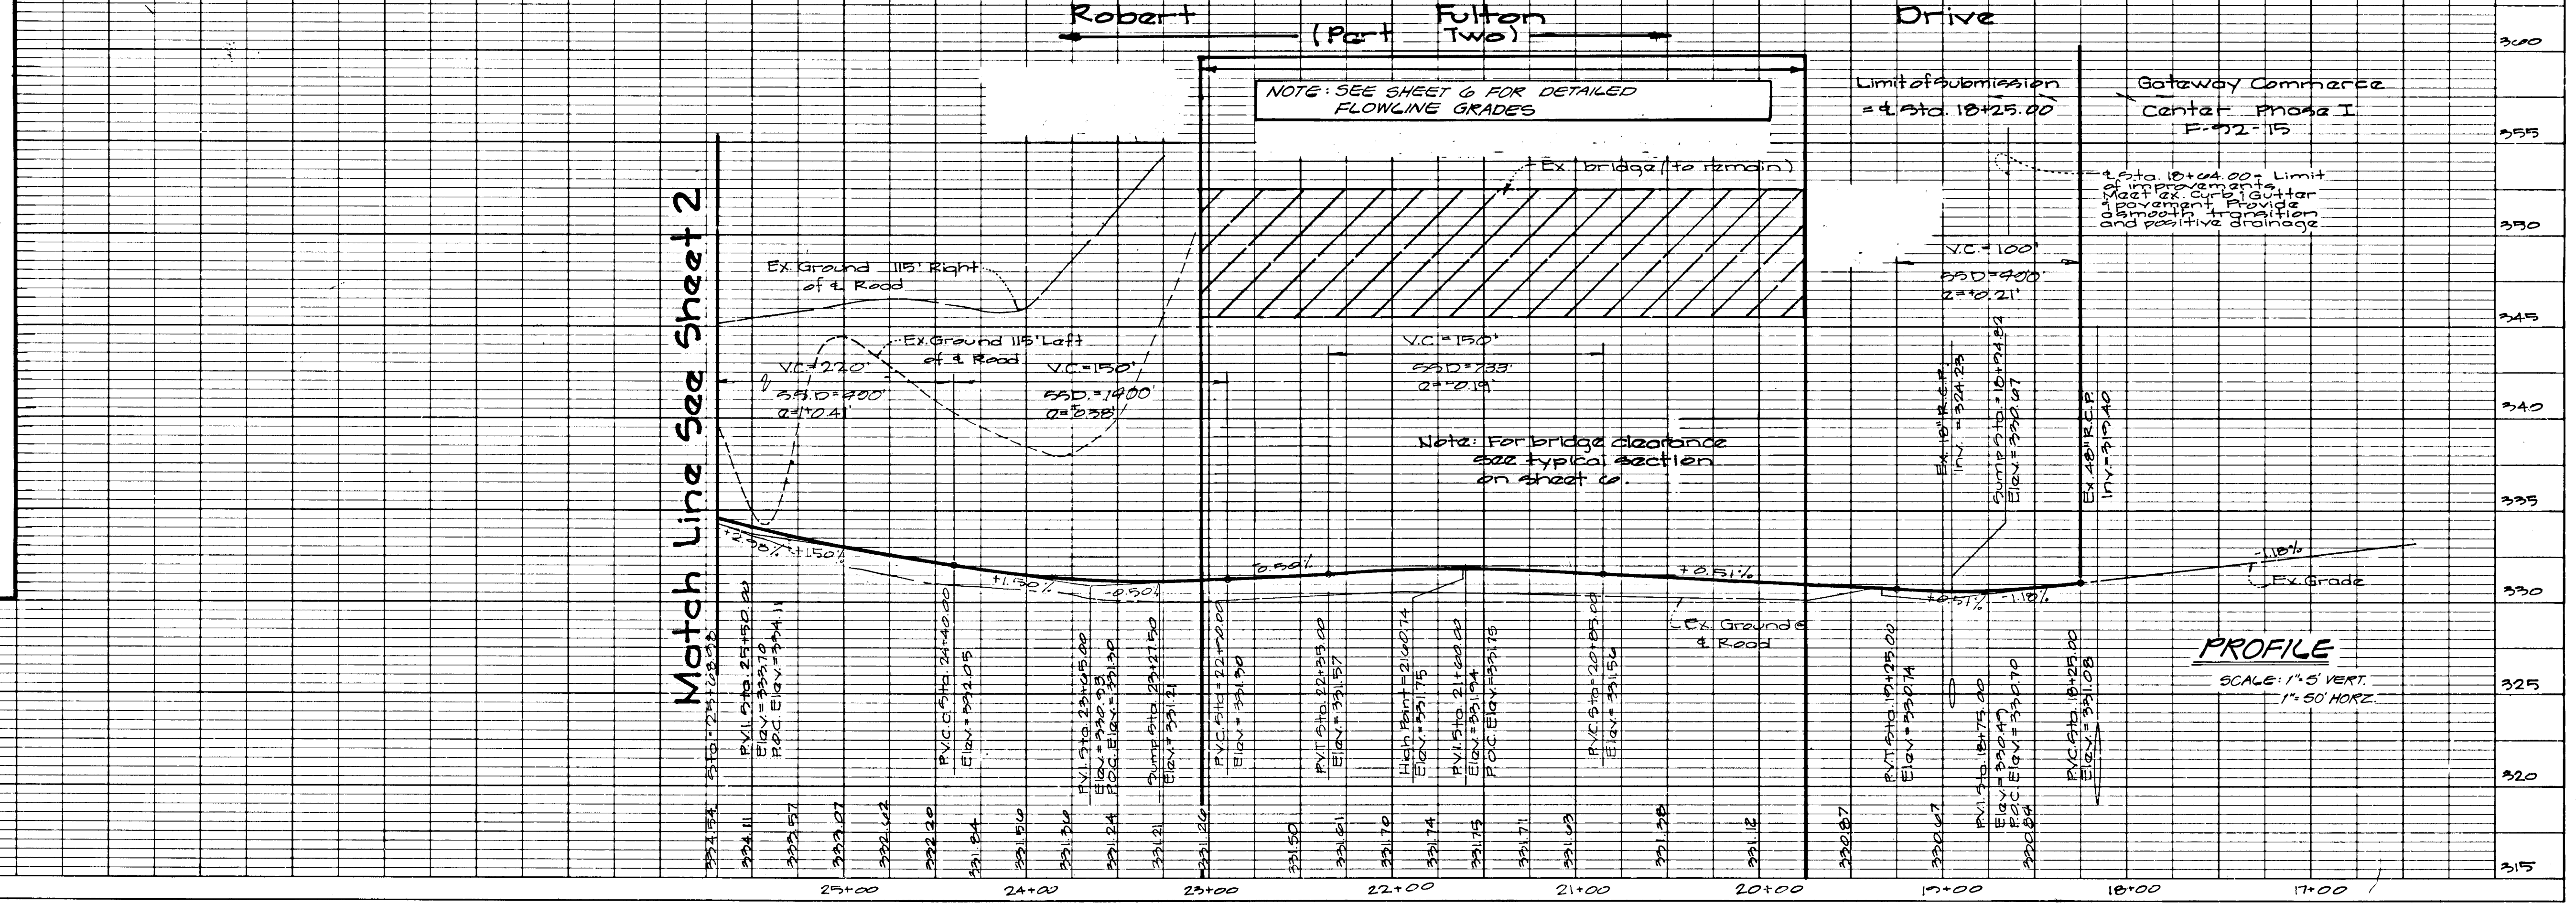 Robert Fulton Drive
(Part Two)
NOTE: SEE SHEET 6 FOR DETAILED
FLOWLINE GRADES
Limit of Submission
= ℄ Sta. 18+25.00
Gateway Commerce
Center Phase I
F-92-15
Ex. bridge (to remain)
℄ Sta. 18+64.00 = Limit
of improvements
Meet ex. Curb & Gutter
& pavement. Provide
a smooth transition
and positive drainage
Match Line See Sheet 2
Ex. Ground 115' Right
of ℄ Road
Ex. Ground 115' Left
of ℄ Road
V.C. = 220'
S.S.D. = 400'
e = +0.41'
V.C. = 150'
S.S.D. = 1400'
e = +0.38'
V.C. = 150'
S.S.D = 733'
e = -0.19'
V.C. = 100'
S.S.D = 400'
e = +0.21'
Note: For bridge clearance
see typical section
on sheet 6.
Ex. 18" R.C.P.
Inv. = 324.23
Sump Sta. = 18+94.82
Elev. = 330.67
Ex. 48" R.C.P.
Inv. = 319.40
+2.98%
+1.50%
+1.50%
-0.50%
-0.50%
+0.51%
+0.51%
-1.18%
-1.18%
Ex. Grade
Ex. Ground @
℄ Road
P.V.I. Sta. 25+50.00
Elev. = 333.70
P.O.C. Elev. = 334.11
P.V.C.C. Sta. 24+40.00
Elev. = 332.05
P.V.I. Sta. 23+65.00
Elev. = 330.93
P.O.C. Elev. = 331.30
Sump Sta. 23+27.50
Elev. = 331.21
P.V.C. Sta = 22+90.00
Elev. = 331.30
P.V.T. Sta. 22+35.00
Elev. = 331.57
High Point = 21+60.74
Elev. = 331.75
P.V.I. Sta. 21+60.00
Elev. = 331.94
P.O.C. Elev. = 331.75
P.V.C. Sta = 20+85.00
Elev. = 331.56
P.V.T. Sta. 19+25.00
Elev = 330.74
P.V.I. Sta. 18+75.00
Elev. = 330.49
P.O.C. Elev. = 330.70
P.V.C. Sta. 18+25.00
Elev. = 331.08
PROFILE
SCALE: 1"=5' VERT.
1"=50' HORZ.
334.54
334.11
333.57
333.07
332.62
332.20
331.84
331.56
331.36
331.24
331.21
331.26
331.50
331.61
331.70
331.74
331.75
331.71
331.63
331.38
331.12
330.87
330.67
330.84
360
355
350
345
340
335
330
325
320
315
25+00
24+00
23+00
22+00
21+00
20+00
19+00
18+00
17+00